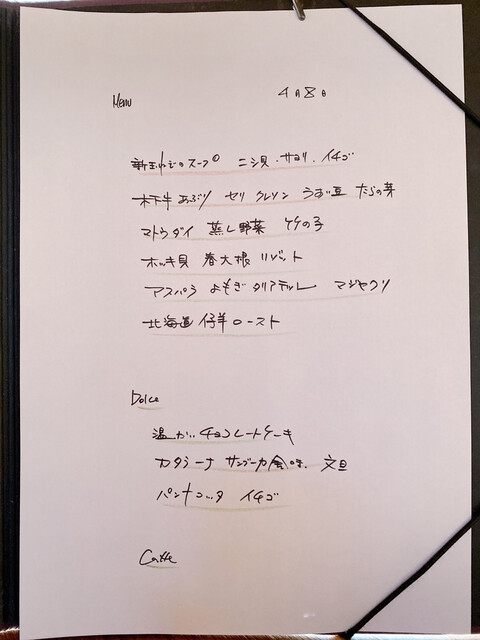 Menu 4月8日
新玉ねぎのスープ ニシ貝・サヨリ・イチゴ
木下牛あぶり セリ クレソン うすい豆 たらの芽
マトウダイ 蒸し野菜 竹の子
ホッキ貝 春大根 リバット
アスパラ よもぎタリアテッレ マジャクリ
北海道 仔羊ロースト
Dolce
温かいチョコレートケーキ
カタラーナ サンブーカ風味 文旦
パンナコッタ イチゴ
Caffe